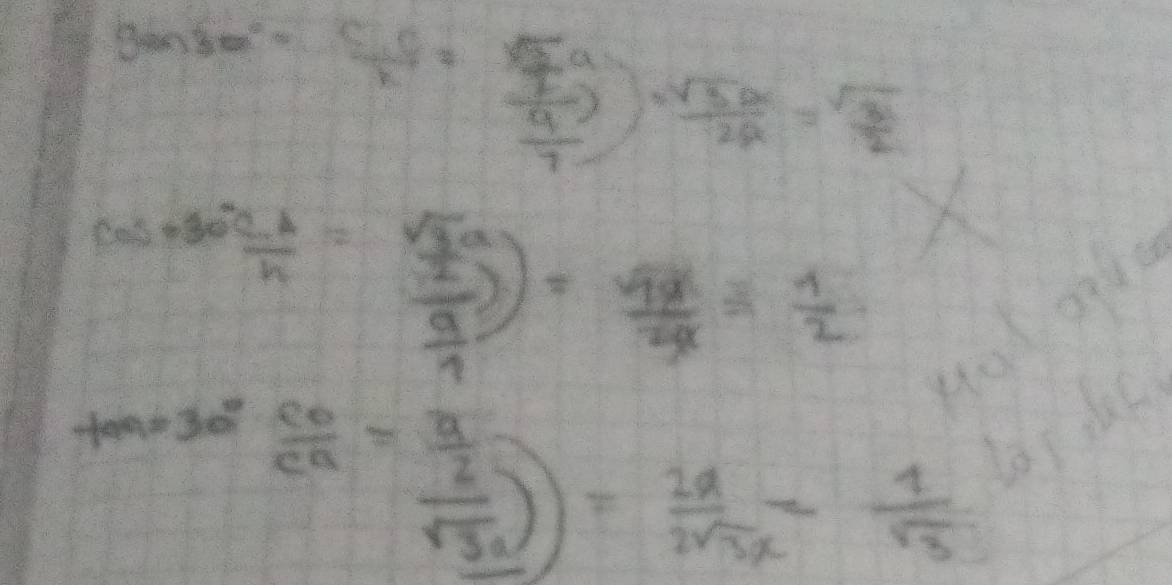 sen 30° = C.O/h = (√3/2 a)/(a/1) = √3a/2a = √3/2
cos 30° C.A/h = (√3/2 a)/(a/1) = √1a/2a = 1/2
tan 30° CO/CA = (a/2)/(√3a) = 2a/2√3a = 1/√3
Mal
las